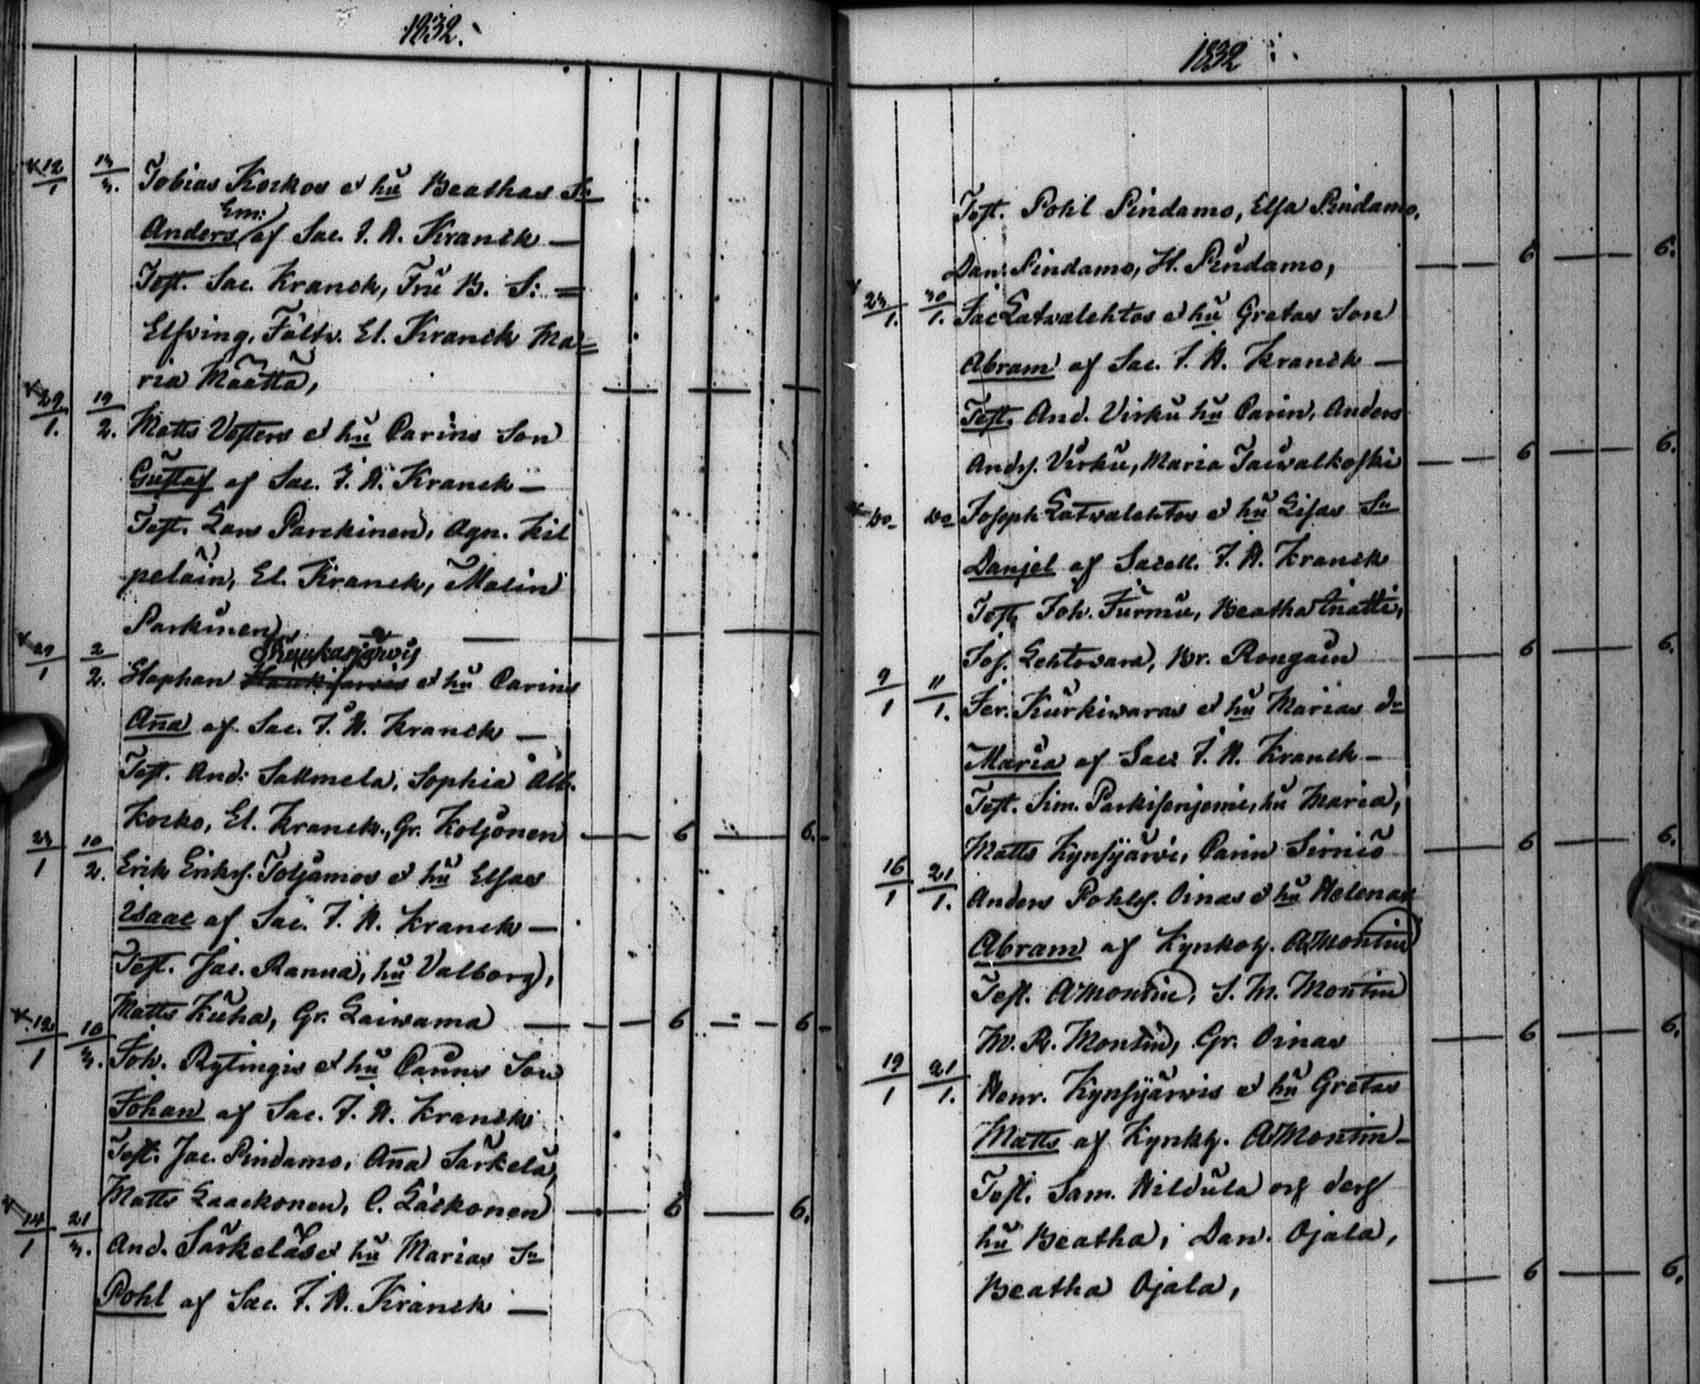 1832.
12/1 13/3. Tobias Korkos et hu Beathas Sn
Em:
Anders af Sac. J. A. Kranck —
Test. Sac. Kranck, Fru B. S: =
Elfving, Fältv. El. Kranck Ma=
ria Määttä,
29/1. 19/2. Matts Vesters et hu Carins Son
Gustaf af Sac. J. A. Kranck —
Test. Lars Parckinen, Agn. Kil
peläin, El. Kranck, Malin
Parkinen,
29/1 2/2. Staphan et hu Carins
Aña af Sac. J. A. Kranck —
Test. And: Salmela, Sophia Alb.
Korko, El. Kranck, Gr. Koljonen — 6 — 6.
23/1 10/2. Erik Eriks. Toljamos et hu Elsas
Isaac af Sac. J. A. Kranck —
Test. Jac. Ranua, hu Valborg,
Matts Kuha, Gr. Laiwama — 6 — 6
12/1 18/3. Joh. Rytingis et hu Carins Son
Johan af Sac. J. A. Kranck
Test. Jac. Pindamo, Aña Särkelä,
Matts Laackonen, C. Läckonen — 6 — 6.
14/1 21/3. And. Särkeläs et hu Marias Sn
Pohl af Sac. J. A. Kranck —
1832
Test. Pohl Pindamo, Elsa Pindamo,
Dan: Pindamo, H. Pindamo, — 6 — 6.
23/1. 30/1. Jac Latvalehtos et hu Gretas Son
Abram af Sac. J. A. Kranck —
Test. And. Virku hu Carin, Anders
Ands. Virku, Maria Taiwalkoski — 6 — 6.
do do Joseph Latvalehtos et hu Lisas Sn
Danjel af Sacell. J. A. Kranck
Test. Joh. Furmu, Beatha Anatti,
Jos. Lehtovara, Br. Rongain — 6 — 6.
9/1 11/1. Jer. Kurkiwaras et hu Marias dr
Maria af Sac. J. A. Kranck —
Test. Sim. Parkisenjemi, hu Maria,
Matts Kynsijärvi, Carin Sirniö — 6 — 6.
16/1 21/1. Anders Pohls. Oinas et hu Helenas
Abram af Kynkohj. A Montin
Test. A Montin, S. M. Montin
M. R. Montin, Gr. Oinas — 6 — 6.
19/1 21/1. Henr. Kynsijärvis et hu Gretas
Matts af Kynkhj. A Montin —
Test. Sam. Hildula och dess
hu Beatha, Dan. Ojala,
Beatha Ojala, — 6 — 6.